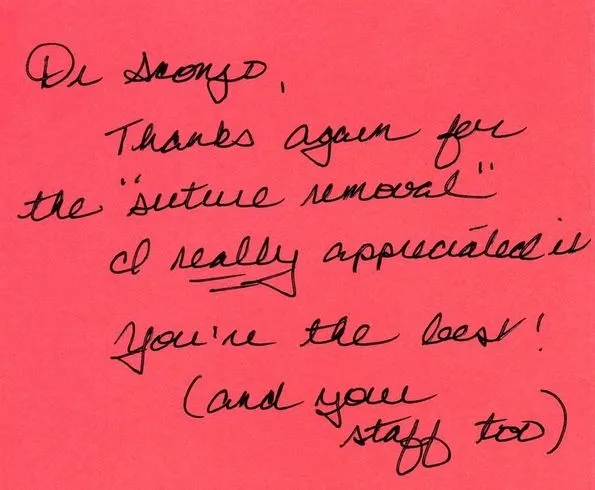 Dr Sconzo,
Thanks again for
the "suture removal"
I really appreciated it
You're the best!
(and your
staff too)